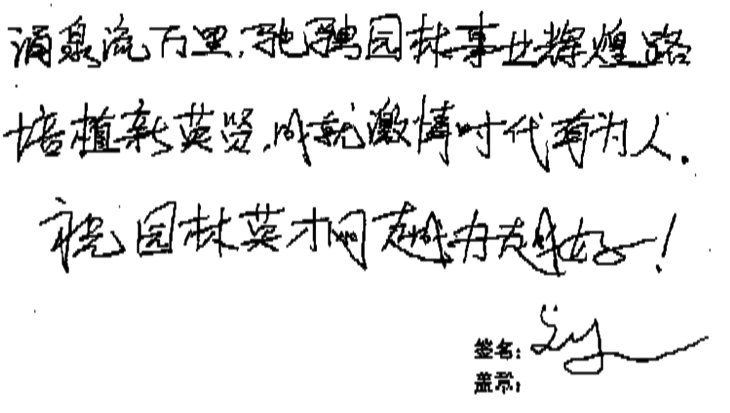 涌泉流万里,驰骋园林事业辉煌路
培植新英贤,成就激情时代有为人.
祝园林英才网越办越好!
签名:
盖章: